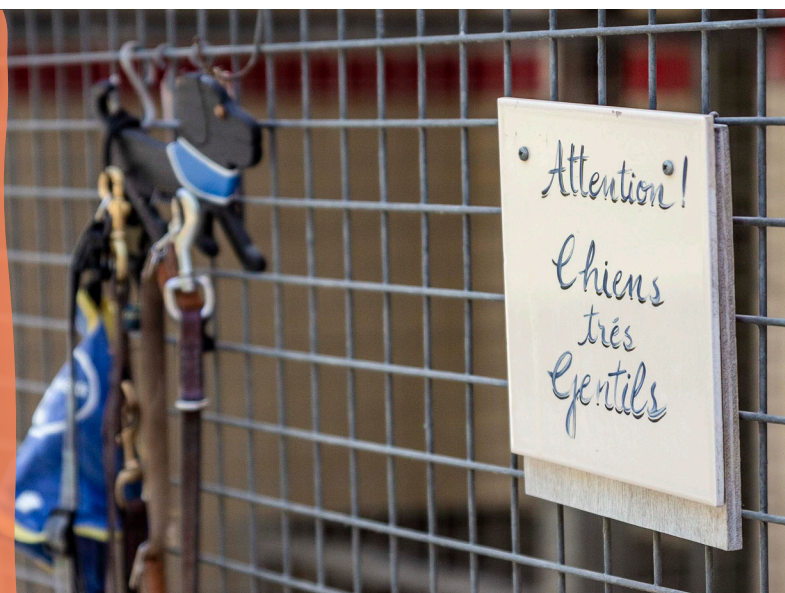 Attention!
Chiens
trés
Gentils